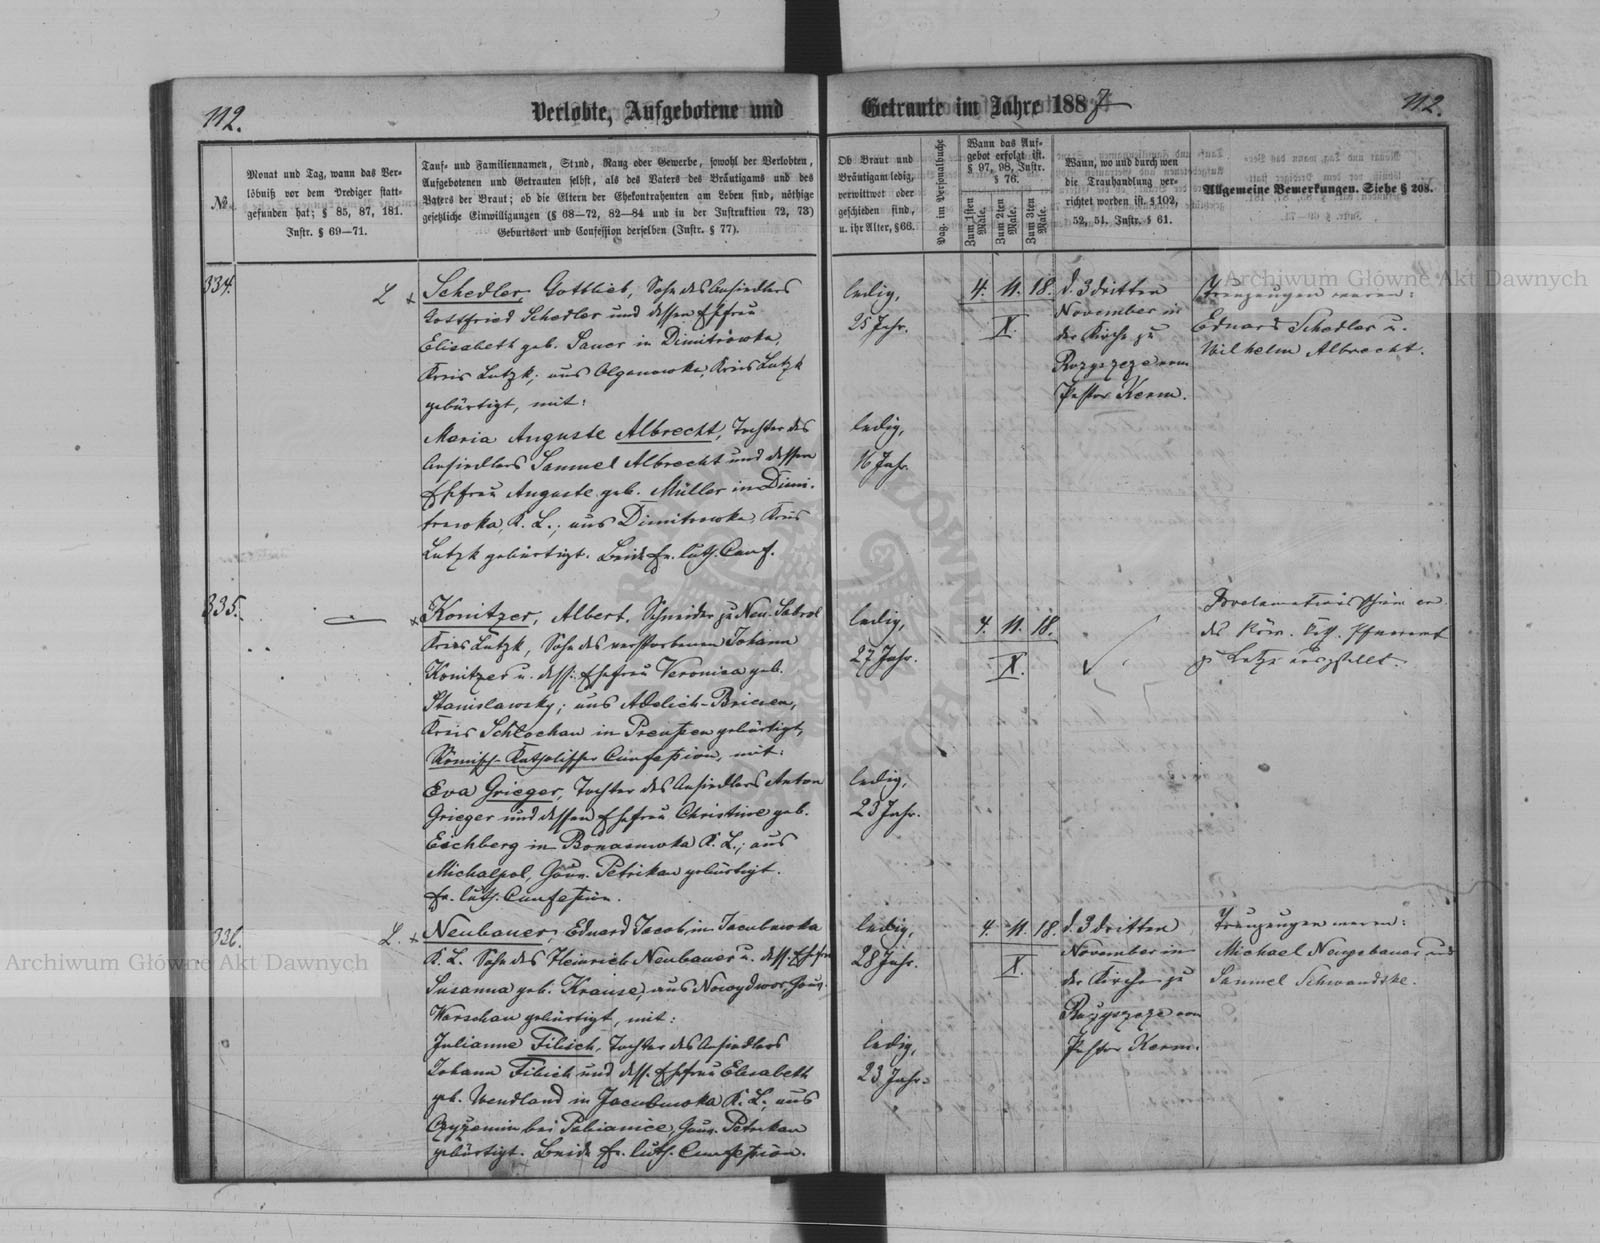 112.
Verlobte, Aufgebotene und
Getraute im Jahre 1887
112.
№
Monat und Tag, wann das Ver-
löbniß vor dem Prediger statt-
gefunden hat; § 85, 87, 181.
Instr. § 69—71.
Tauf- und Familiennamen, Stand, Rang oder Gewerbe, sowohl der Verlobten,
Aufgebotenen und Getrauten selbst, als des Vaters des Bräutigams und des
Vaters der Braut; ob die Eltern der Ehekontrahenten am Leben sind, nöthige
gesetzliche Einwilligungen (§ 68—72, 82—84 und in der Instruktion 72, 73)
Geburtsort und Confession derselben (Instr. § 77).
Ob Braut und
Bräutigam ledig,
verwittwet oder
geschieden sind,
u. ihr Alter, § 66.
Pag. im Personalbuche
Wann das Auf-
gebot erfolgt ist.
§ 97, 98, Instr.
§ 76.
Zum 1sten
Male.
Zum 2ten
Male.
Zum 3ten
Male.
Wann, wo und durch wen
die Trauhandlung ver-
richtet worden ist. § 102,
52, 51. Instr. § 61.
Allgemeine Bemerkungen. Siehe § 208.
334.
L
Schedler, Gottlieb, Sohn des Ansiedlers
Gottfried Schedler und dessen Ehefrau
Elisabeth geb. Sauer in Dimitrowka,
Kreis Lutzk; aus Olganowka, Kreis Lutzk
gebürtigt, mit:
Maria Auguste Albrecht, Tochter des
Ansiedlers Samuel Albrecht und dessen
Ehefrau Auguste geb. Müller in Dimi-
trowka, K. L.; aus Dimitrowka, Kreis
Lutzk gebürtigt. Beide ev. luth. Conf.
ledig,
25 Jahr.
ledig,
16 Jahr.
4. 11. 18.
X.
d. 3 dritten
November in
der Kirche zu
Rozyszcze vom
Pastor Kerm.
Trauzeugen waren:
Eduard Schedler u.
Wilhelm Albrecht.
335.
Konitzer, Albert, Schneider zu Neu
Kreis Lutzk, Sohn des verstorbenen Johann
Konitzer u. dess. Ehefrau Veronica geb.
Stanislawsky; aus Adelich-Briesen,
Kreis Schlochau in Preußen gebürtigt,
Römisch-Katholischer Confession, mit:
Eva Grieger, Tochter des Ansiedlers Anton
Grieger und dessen Ehefrau Christine geb.
Eschberg in K. L.; aus
Michalpol, Gouv. Petrikau gebürtigt.
Ev. luth. Confession.
ledig,
27 Jahr.
ledig,
23 Jahr.
4. 11. 18.
X.
Proclamationsschein
des Röm. Kath. Pfarramt
zu ausgestellt.
336.
L.
Neubauer, Eduard Jacob, in Jacubowka
K. L. Sohn des Heinrich Neubauer u. dess. Ehefrau
Susanna geb. Krause, aus Nowydwor, Gouv.
Warschau gebürtigt, mit:
Julianne Filisch, Tochter des Ansiedlers
Johann Filisch und dess. Ehefrau Elisabeth
geb. Wendland in Jacubowka K. L.; aus
bei Pabianice, Gouv. Petrikau
gebürtigt. Beide ev. luth. Confession.
ledig,
28 Jahr.
ledig,
23 Jahr.
4. 11. 18.
X.
d. 3 dritten
November in
der Kirche zu
Rozyszcze vom
Pastor Kerm.
Trauzeugen waren:
Michael Neugebauer und
Samuel Schwandtke.
Archiwum Główne Akt Dawnych
Archiwum Główne Akt Dawnych